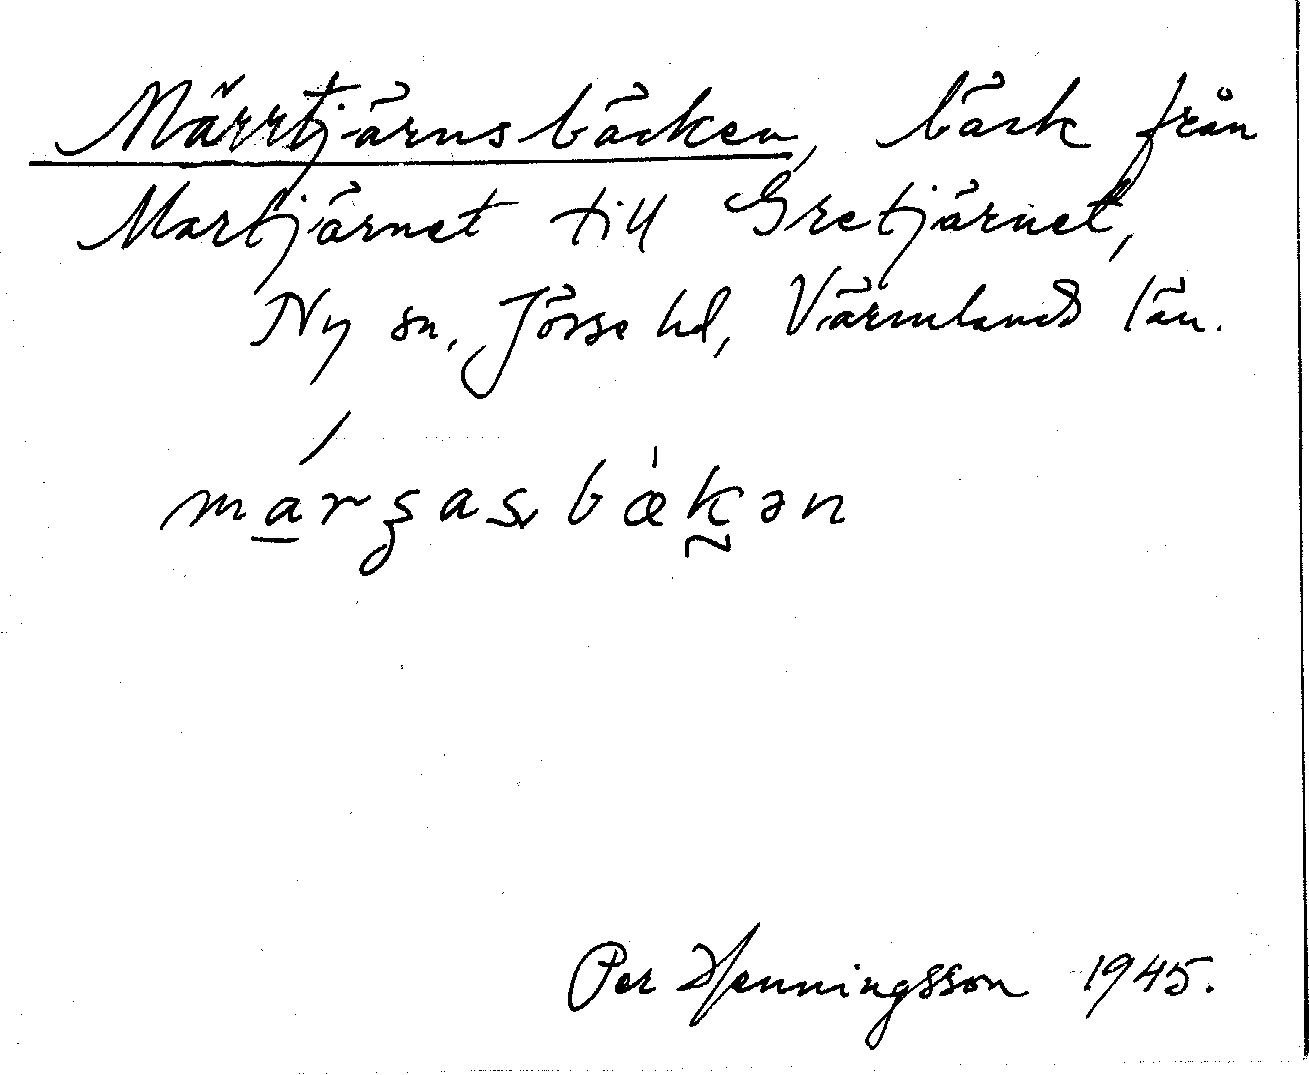 Märrtjärnsbäcken, bäck från
Martjärnet till Gretjärnet,
Ny sn, Jösse hd, Värmlands län.
Per Henningsson 1945.